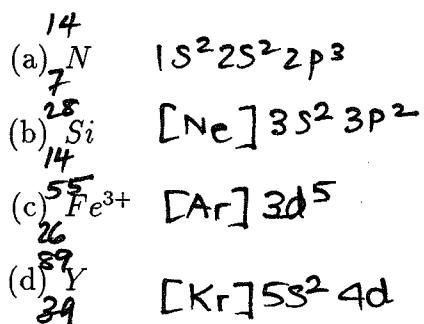 (a) ¹⁴₇N 1s² 2s² 2p³
(b) ²⁸₁₄Si [Ne] 3s² 3p²
(c) ⁵⁵₂₆Fe³⁺ [Ar] 3d⁵
(d) ⁸⁹₃₉Y [Kr] 5s² 4d